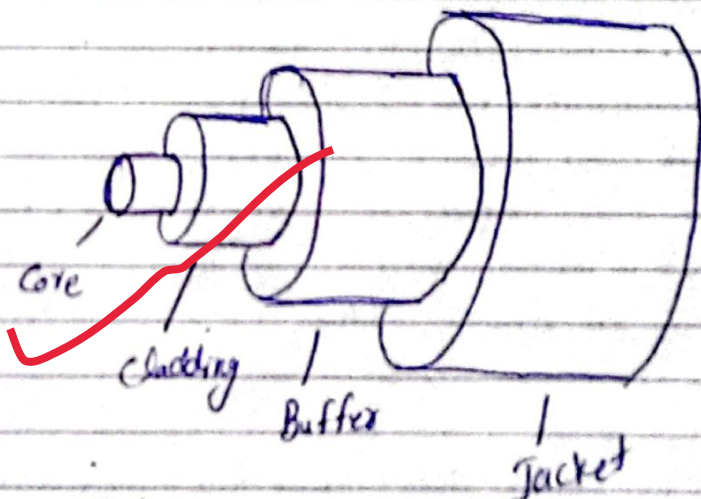 Core
Cladding
Buffer
Jacket